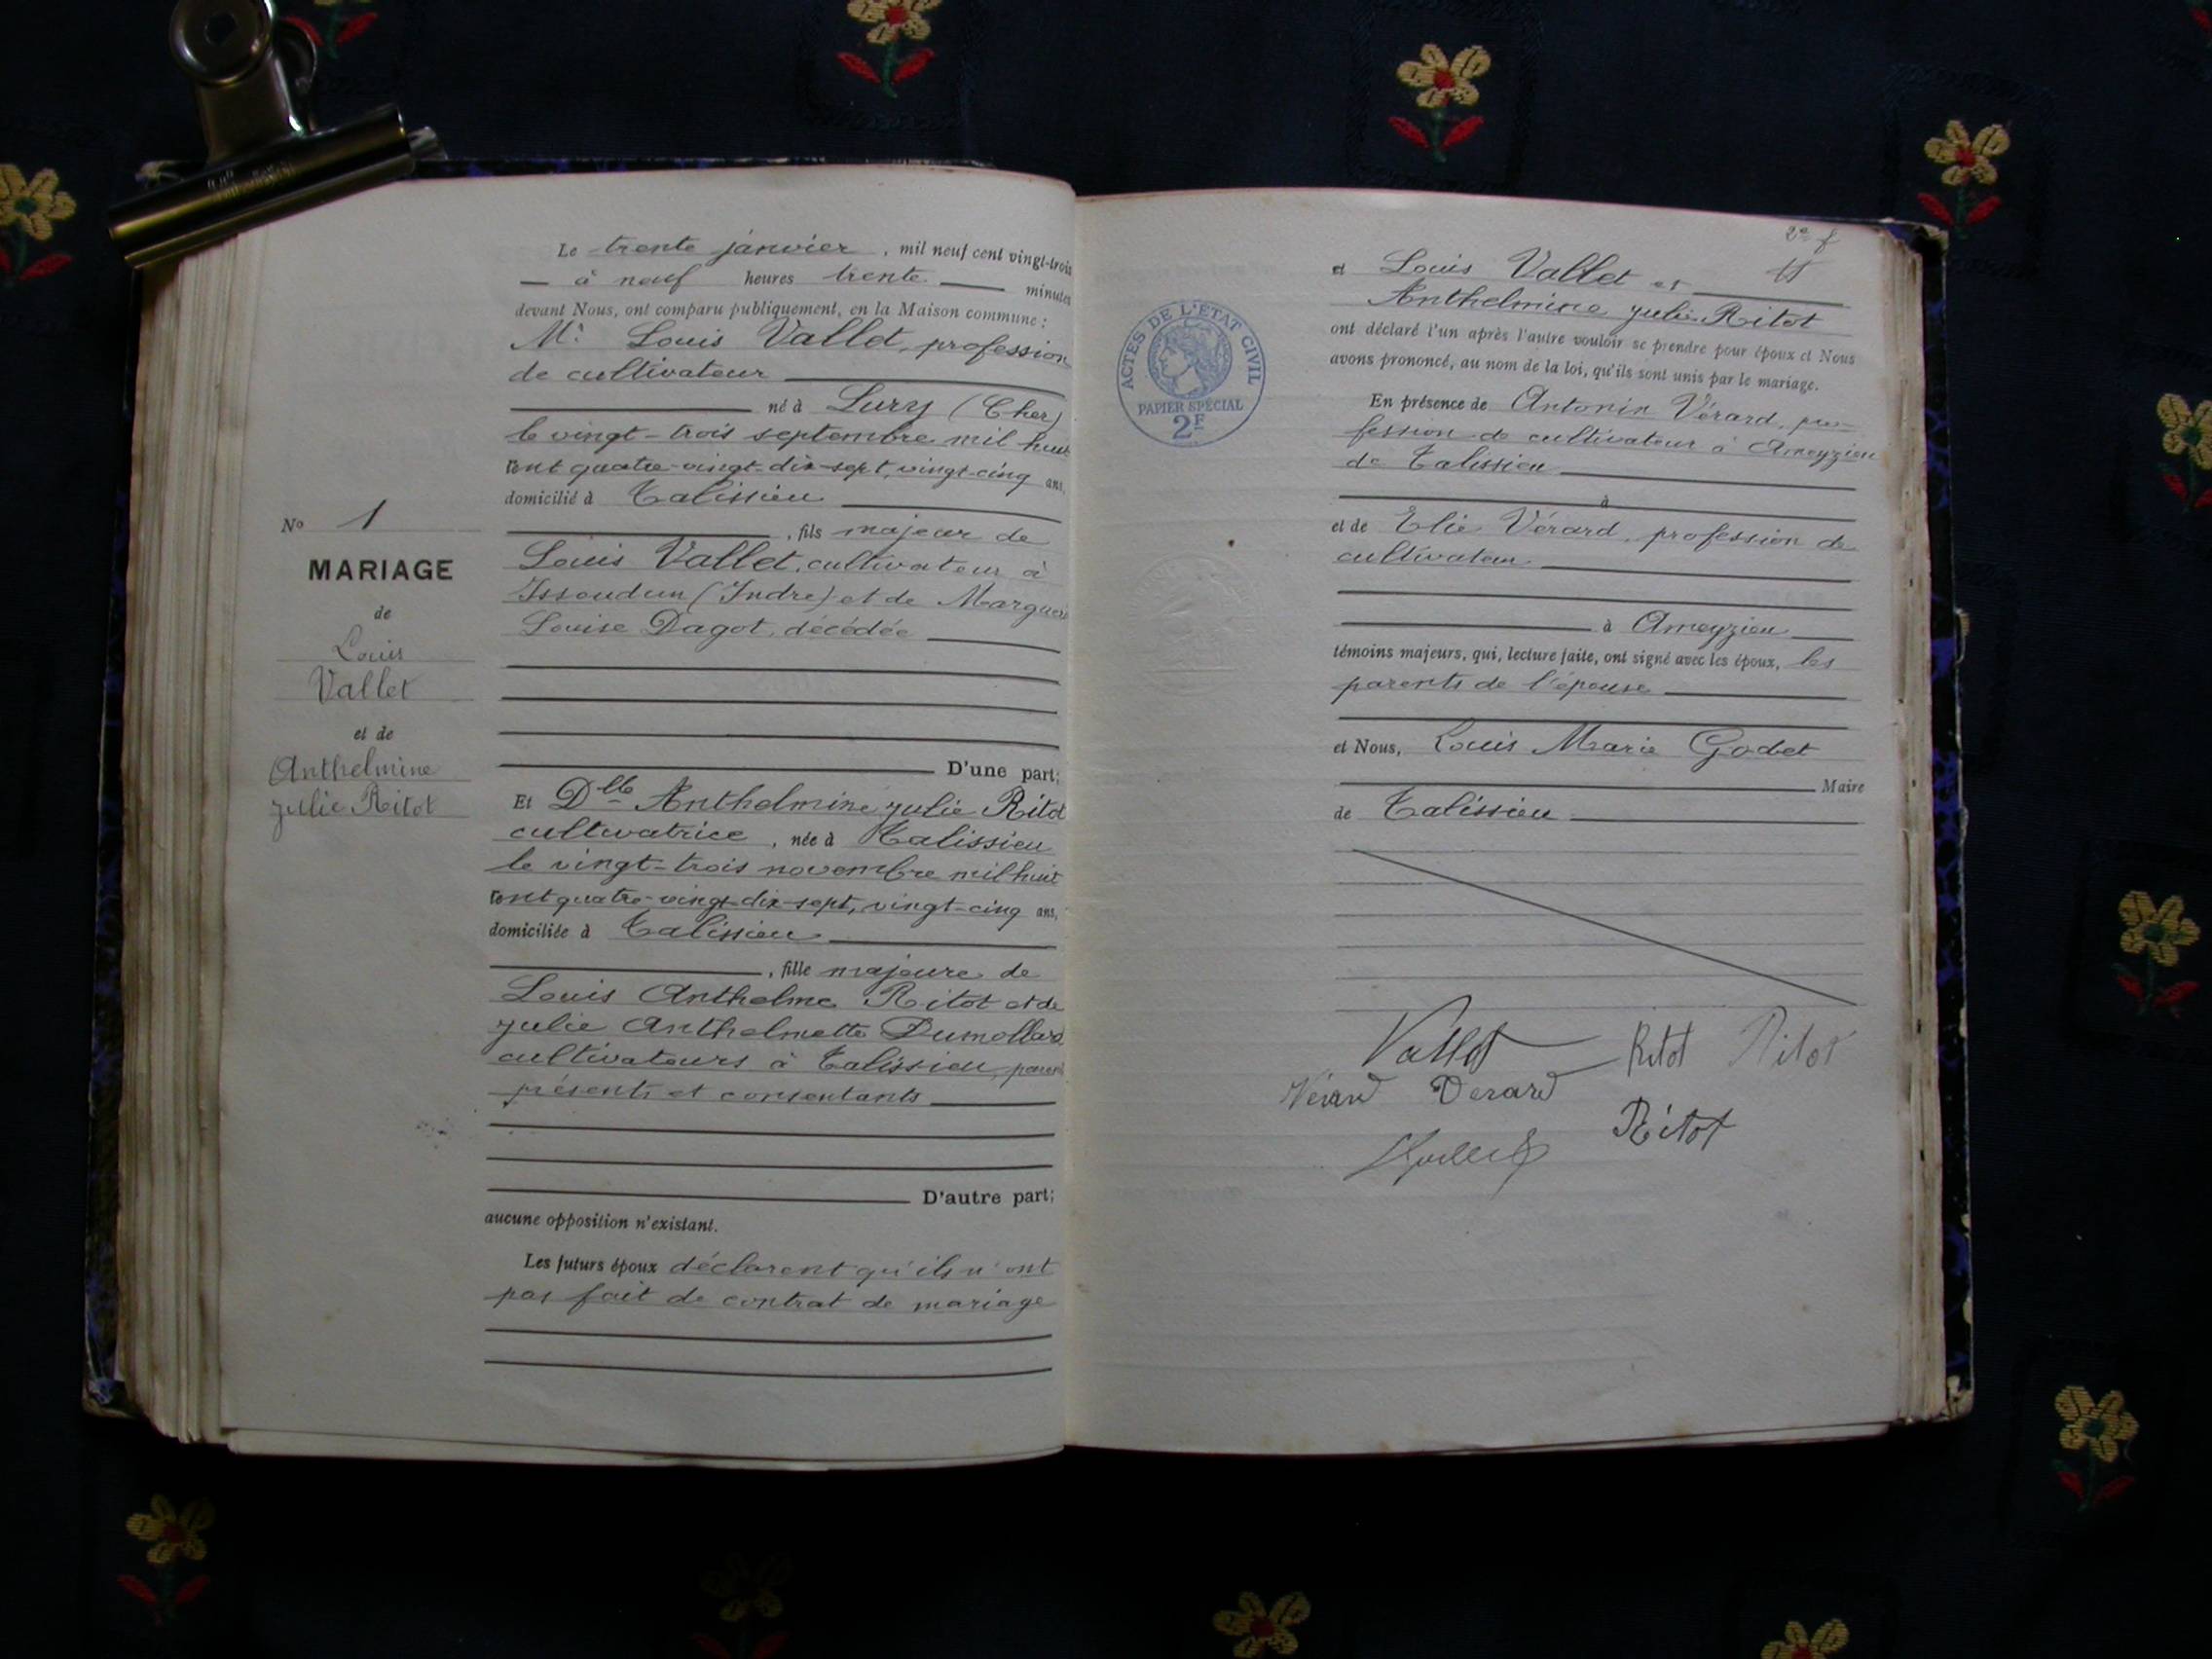 Le trente janvier, mil neuf cent vingt-trois
à neuf heures trente minutes
devant Nous, ont comparu publiquement, en la Maison commune :
Mr Louis Vallet, profession
de cultivateur
né à Lury (Cher)
le vingt-trois septembre mil huit
cent quatre-vingt-dix-sept, vingt-cinq ans,
domicilié à Talissieu
, fils majeur de
Louis Vallet, cultivateur à
Issoudun (Indre) et de
Louise Dagot, décédée
D'une part;
Et Dlle Anthelmine Julie Ritot
cultivatrice, née à Talissieu
le vingt-trois novembre mil huit
cent quatre-vingt-dix-sept, vingt-cinq ans,
domiciliée à Talissieu
, fille majeure de
Louis Anthelme Ritot et de
Julie Anthelmette Dumollard
cultivateurs à Talissieu,
présents et consentants
D'autre part;
aucune opposition n'existant.
Les futurs époux déclarent qu'ils n'ont
pas fait de contrat de mariage
No 1
MARIAGE
de
Louis
Vallet
et de
Anthelmine
Julie Ritot
et Louis Vallet et
Anthelmine Julie Ritot
ont déclaré l'un après l'autre vouloir se prendre pour époux et Nous
avons prononcé, au nom de la loi, qu'ils sont unis par le mariage.
En présence de Antonin Vérard, pro-
fession de cultivateur à Ameyzieu
de Talissieu
à
et de Elie Vérard, profession de
cultivateur
à Ameyzieu
témoins majeurs, qui, lecture faite, ont signé avec les époux, les
parents de l'épouse
et Nous, Louis Marie Godet
Maire
de Talissieu
Vallet Ritot Ritot
Vérard Verard
Ritot
ACTES DE L'ÉTAT CIVIL
PAPIER SPÉCIAL
2F